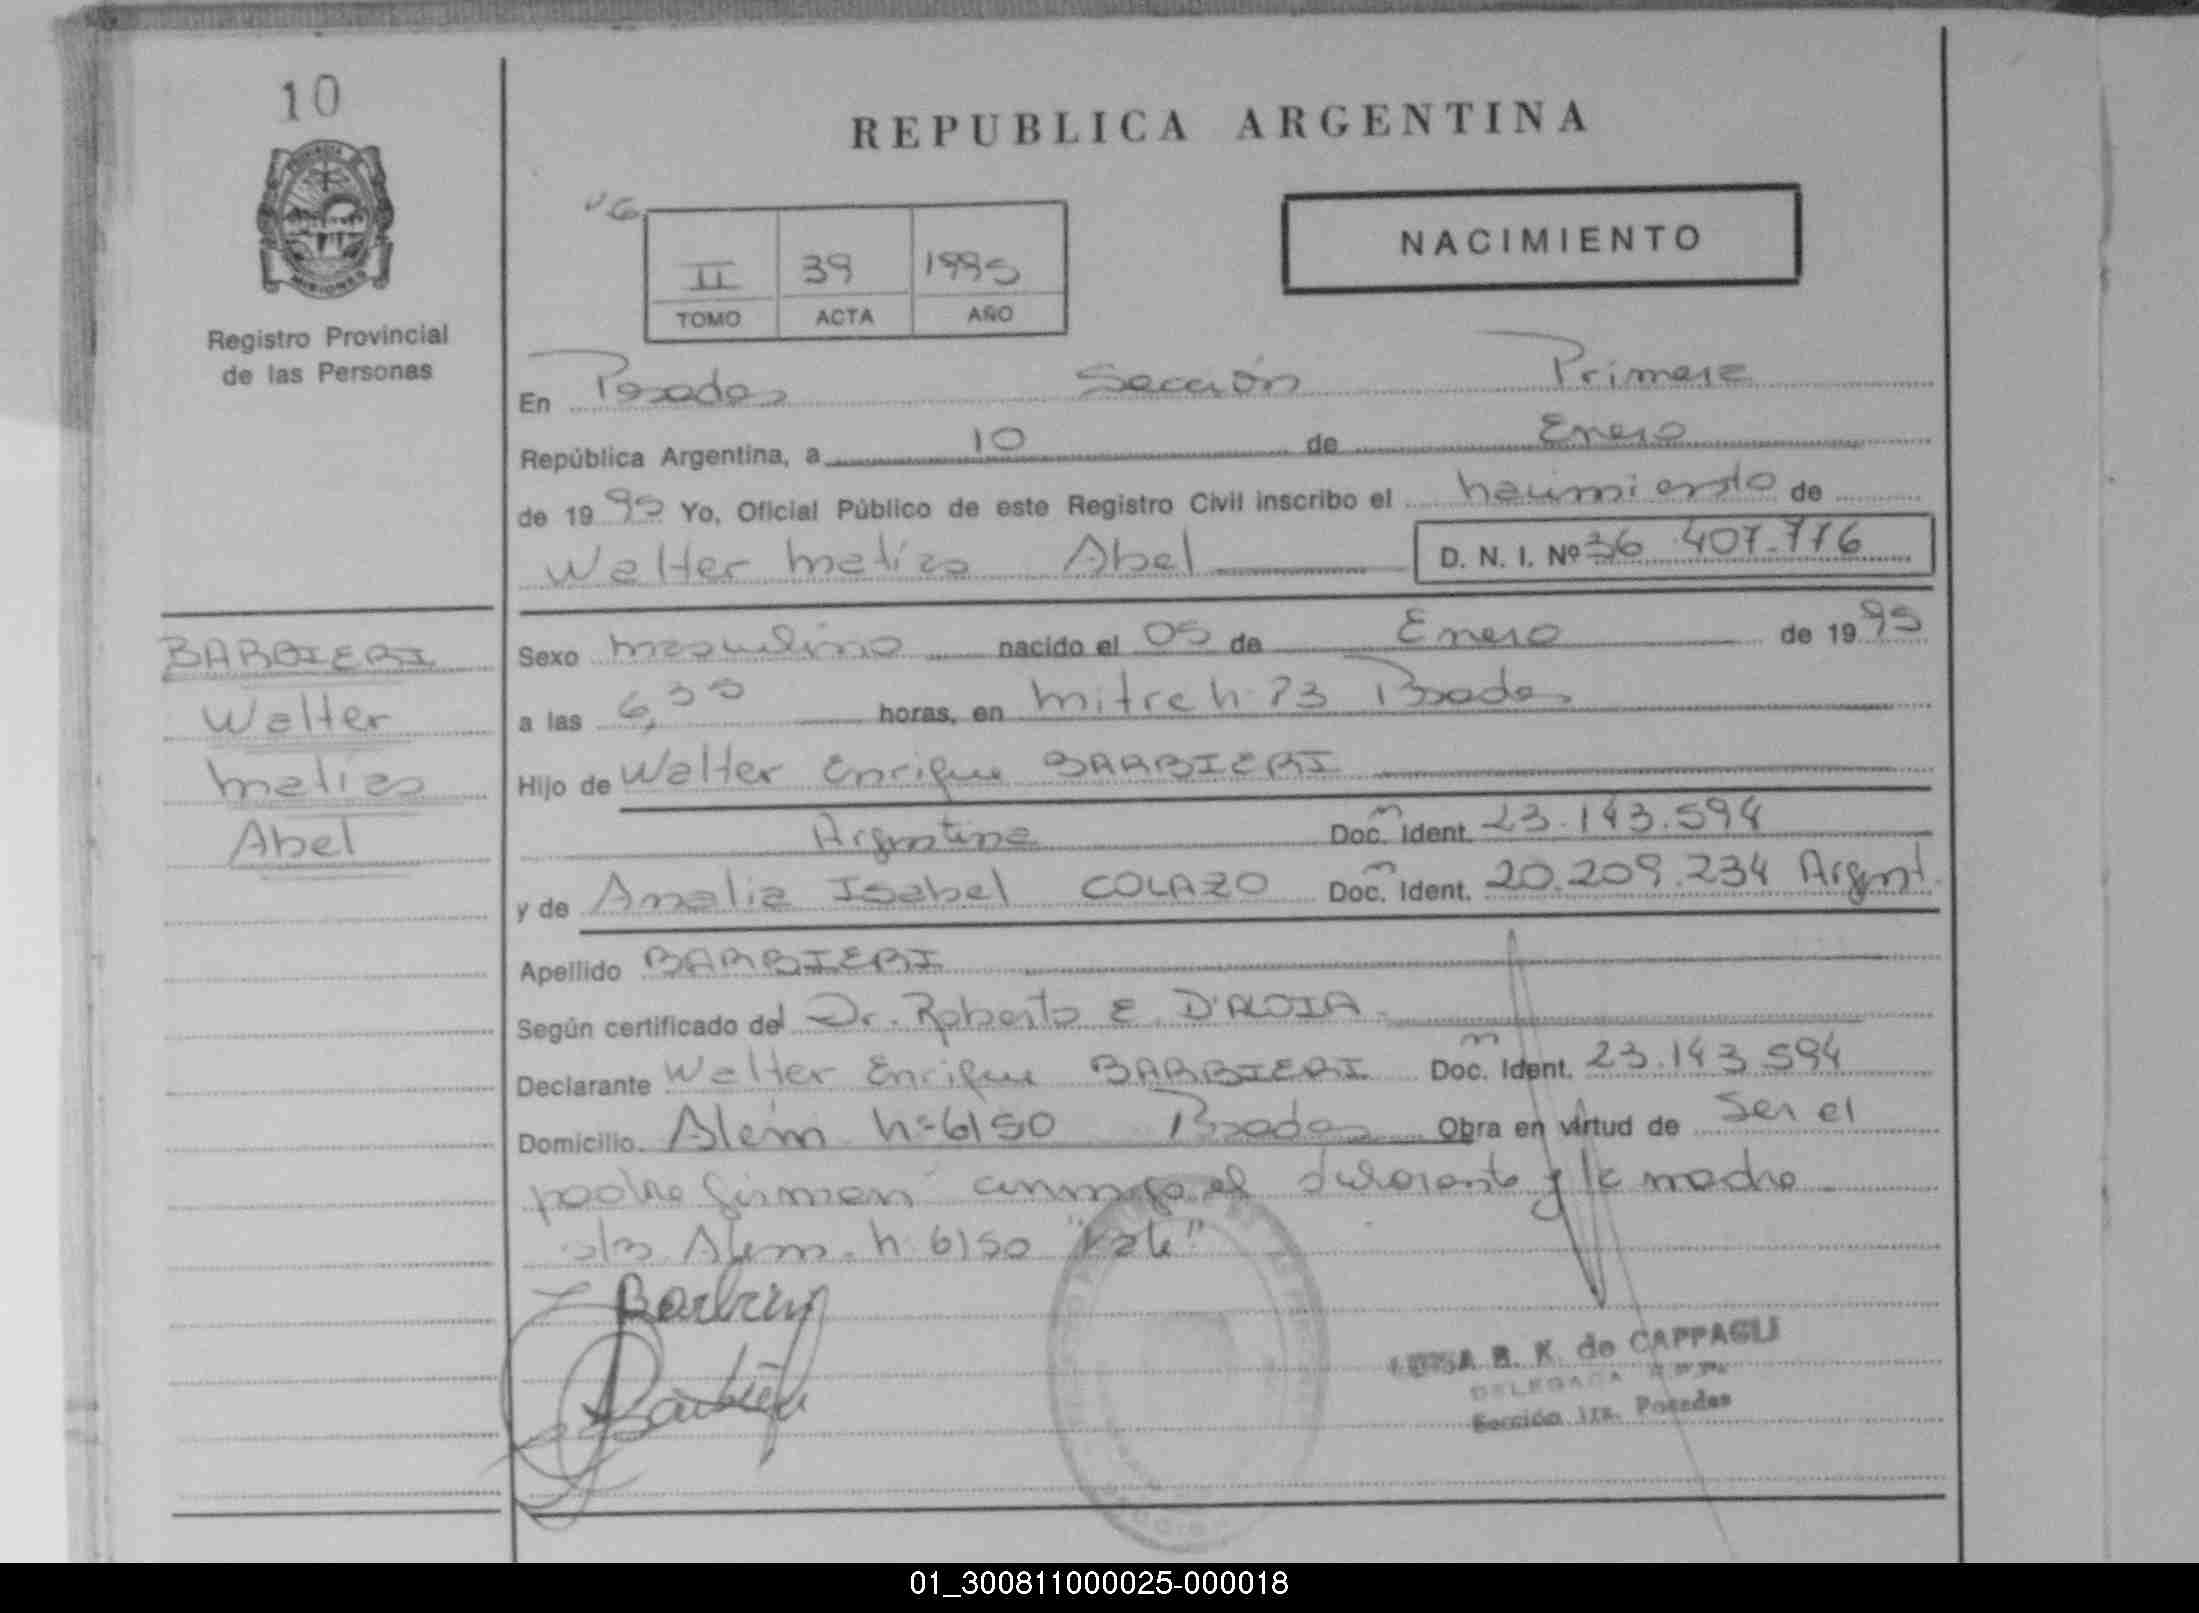 10
REPUBLICA ARGENTINA
PROVINCIA DE
MISIONES
Registro Provincial
de las Personas
NACIMIENTO
II 39 1995
TOMO ACTA AÑO
En Posadas Sección Primera
República Argentina, a 10 de Enero
de 1995 Yo, Oficial Público de este Registro Civil inscribo el nacimiento de
Walter Matías Abel D. N. I. Nº 36 407.776
BARBIERI
Walter
Matías
Abel
Sexo masculino nacido el 05 de Enero de 1995
a las 6,35 horas, en Mitre n: 73 Posadas
Hijo de Walter Enrique BARBIERI
Argentina Doc. Ident. 23.143.594
y de Amalia Isabel COLAZO Doc. Ident. 20.209.234 Argent.
Apellido BARBIERI
Según certificado del Dr. Roberto E. D'ALOIA
Declarante Walter Enrique BARBIERI Doc. Ident. 23.143.594
Domicilio Alem n= 6150 Posadas Obra en virtud de Ser el
padre firman conmigo el declarante y la madre
Alem n: 6150 "Vale"
Barbieri
Barbieri
B. K. de CAPPAGLI
DELEGADA R.P.P.
Sección 1ra. Posadas
01_300811000025-000018